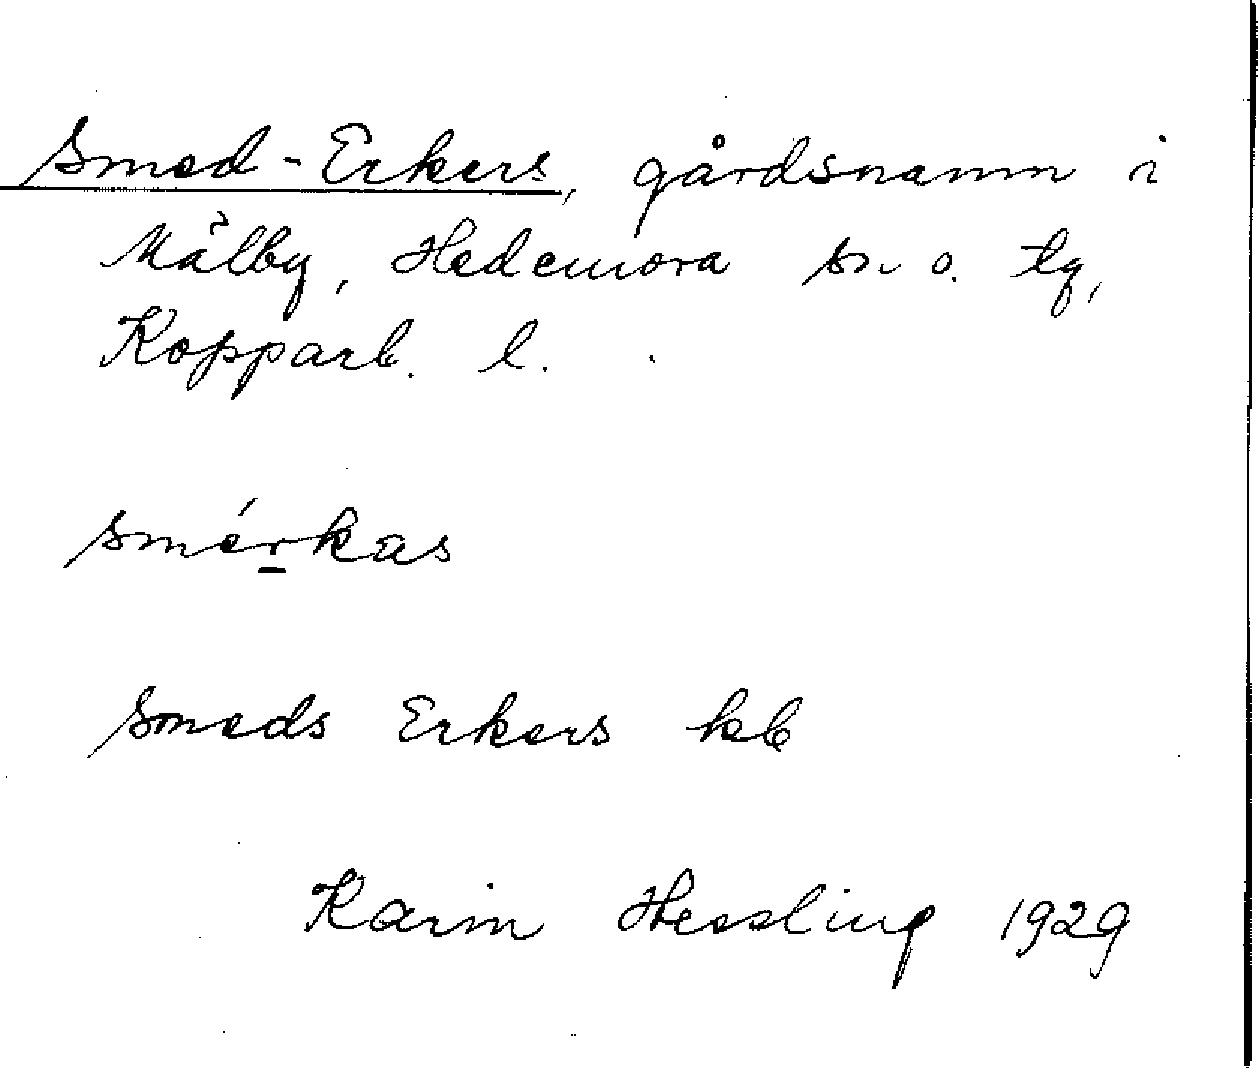 Smed-Erkers, gårdsnamn i
Målby, Hedemora sn o. tg,
Kopparb. l.
smérkas
Smeds Erkers kb
Karin Hessling 1929